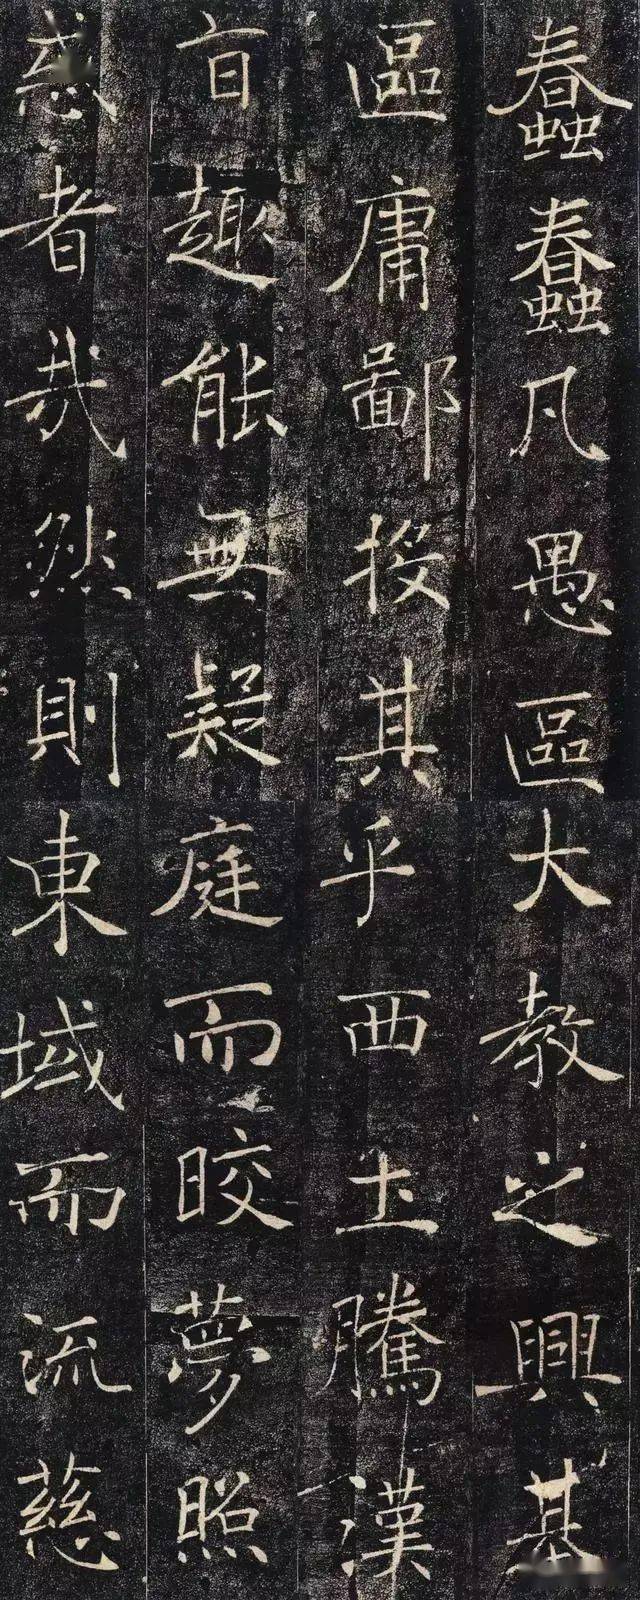 蠢蠢凡愚區
區庸鄙投其
旨趣能無疑
惑者哉然則
大教之興基
乎西土騰漢
庭而晈夢照
東域而流慈